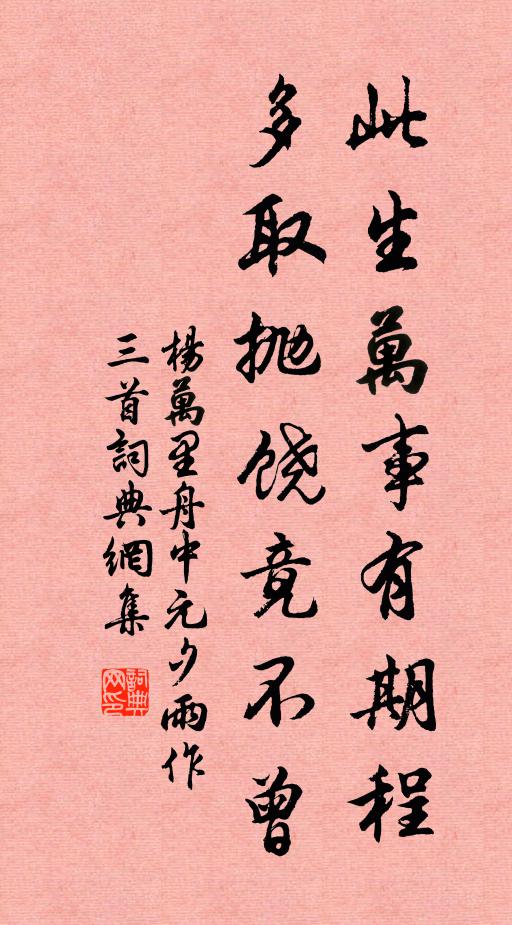 此生萬事有期程
多取抛饶竟不曾
楊萬里舟中元夕雨作
三首詞典網集
詞典
网印